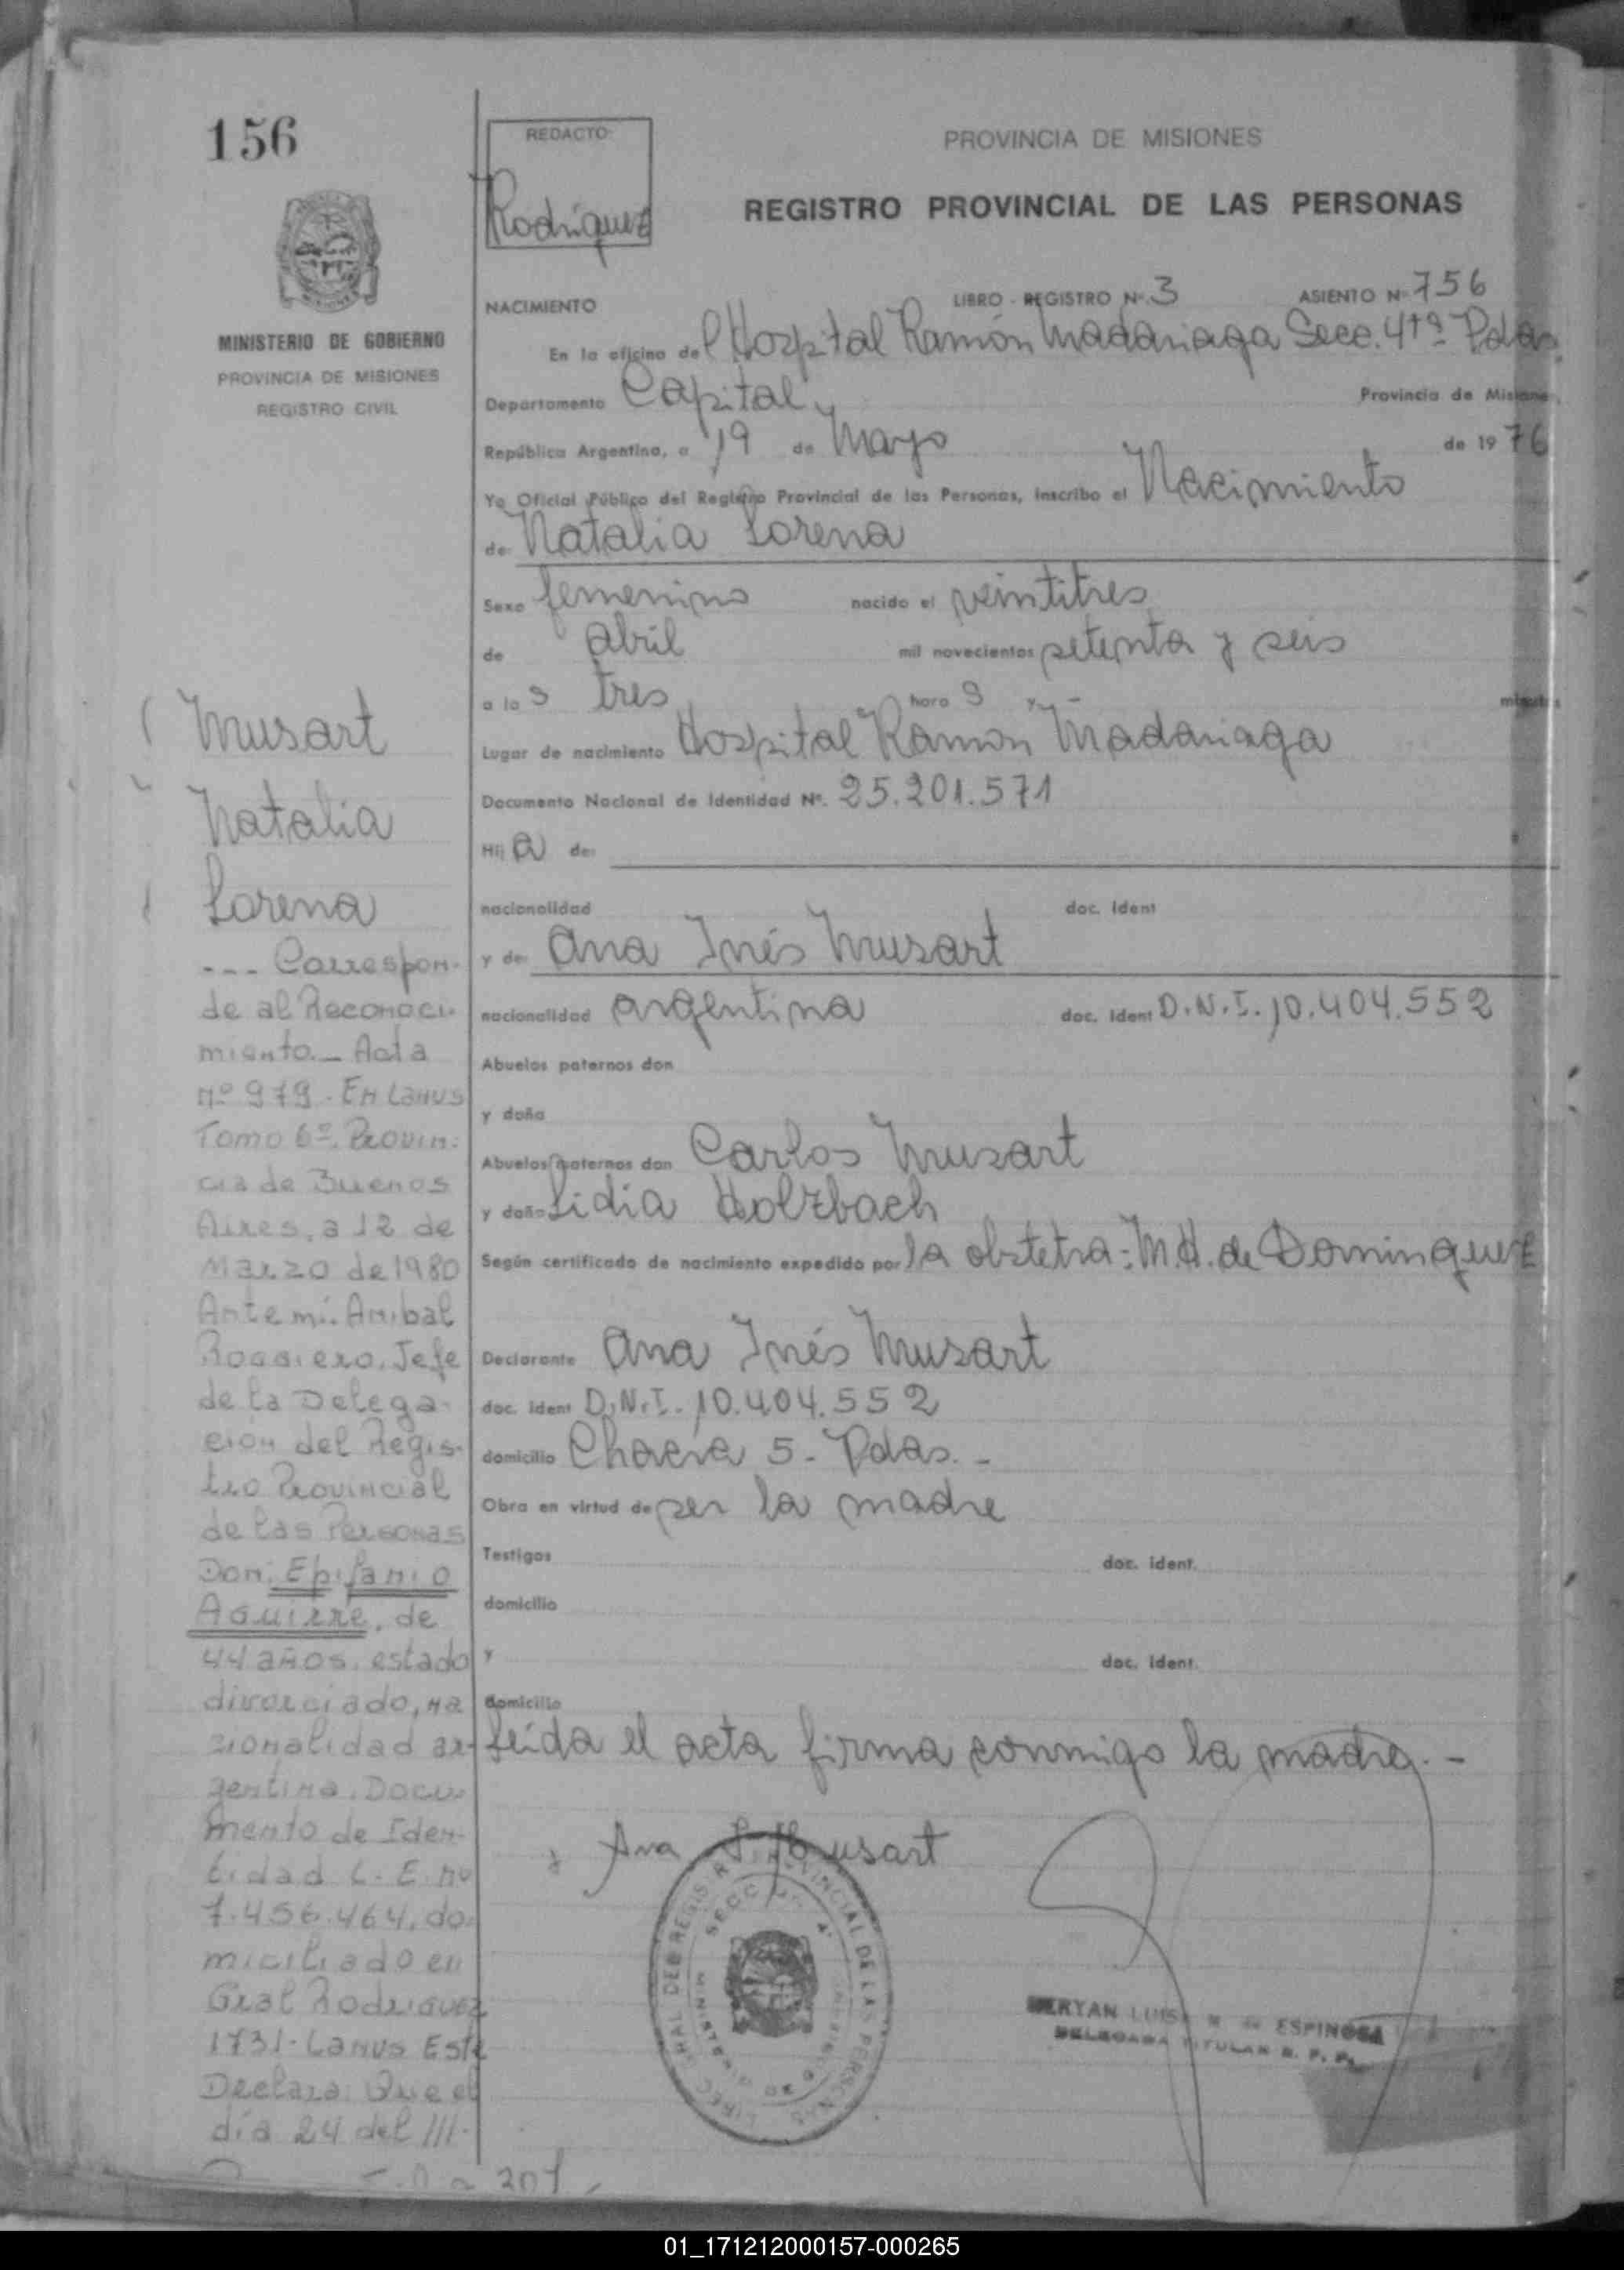 156
REDACTO:
Rodriguez
PROVINCIA DE MISIONES
REGISTRO PROVINCIAL DE LAS PERSONAS
MINISTERIO DE GOBIERNO
PROVINCIA DE MISIONES
REGISTRO CIVIL
NACIMIENTO LIBRO - REGISTRO Nº 3 ASIENTO Nº 756
En la oficina del Hospital Ramón Madariaga Secc. 4ta Pdas.
Departamento Capital, Provincia de Misiones,
República Argentina, a 19 de Mayo de 1976
Yo Oficial Público del Registro Provincial de las Personas, inscribo el Nacimiento
de: Natalia Lorena
Sexo femenino nacido el veintitres
de abril mil novecientos setenta y seis
a las tres horas y - minutos
Lugar de nacimiento Hospital Ramón Madariaga
Documento Nacional de Identidad Nº. 25.201.571
Hija de:
nacionalidad doc. Ident
y de: Ana Inés Musart
nacionalidad argentina doc. Ident D.N.I. 10.404.552
Abuelos paternos don
y doña
Abuelos maternos don Carlos Musart
y doña Lidia Holzbach
Según certificado de nacimiento expedido por la obstetra: M.H. de Dominguez
Declarante Ana Inés Musart
doc. Ident D.N.I. 10.404.552
domicilio Chacra 5 - Pdas. -
Obra en virtud de ser la madre
Testigos doc. ident.
domicilio
y doc. ident.
domicilio
Leída el acta firma conmigo la madre. -
Ana I. Musart
ESPINOSA
DELEGADA TITULAR R. P. P.
Musart
Natalia
Lorena
--- Correspon-
de al Reconoci-
miento._ Acta
nº 979. En Lanus
Tomo 6º. Provin:
cia de Buenos
Aires, a 12 de
Marzo de 1980
Ante mi: Anibal
Roggiero, Jefe
de la Delega-
ción del Regis-
tro Provincial
de las Personas
Don: Epifanio
Aguirre, de
44 años, estado
divorciado, na
cionalidad ar-
gentina. Docu-
mento de Iden-
tidad L. E. nº
7.456.464, do-
miciliado en
Gral Rodriguez
1731- Lanus Este
Declara: Que el
día 24 del
01_171212000157-000265